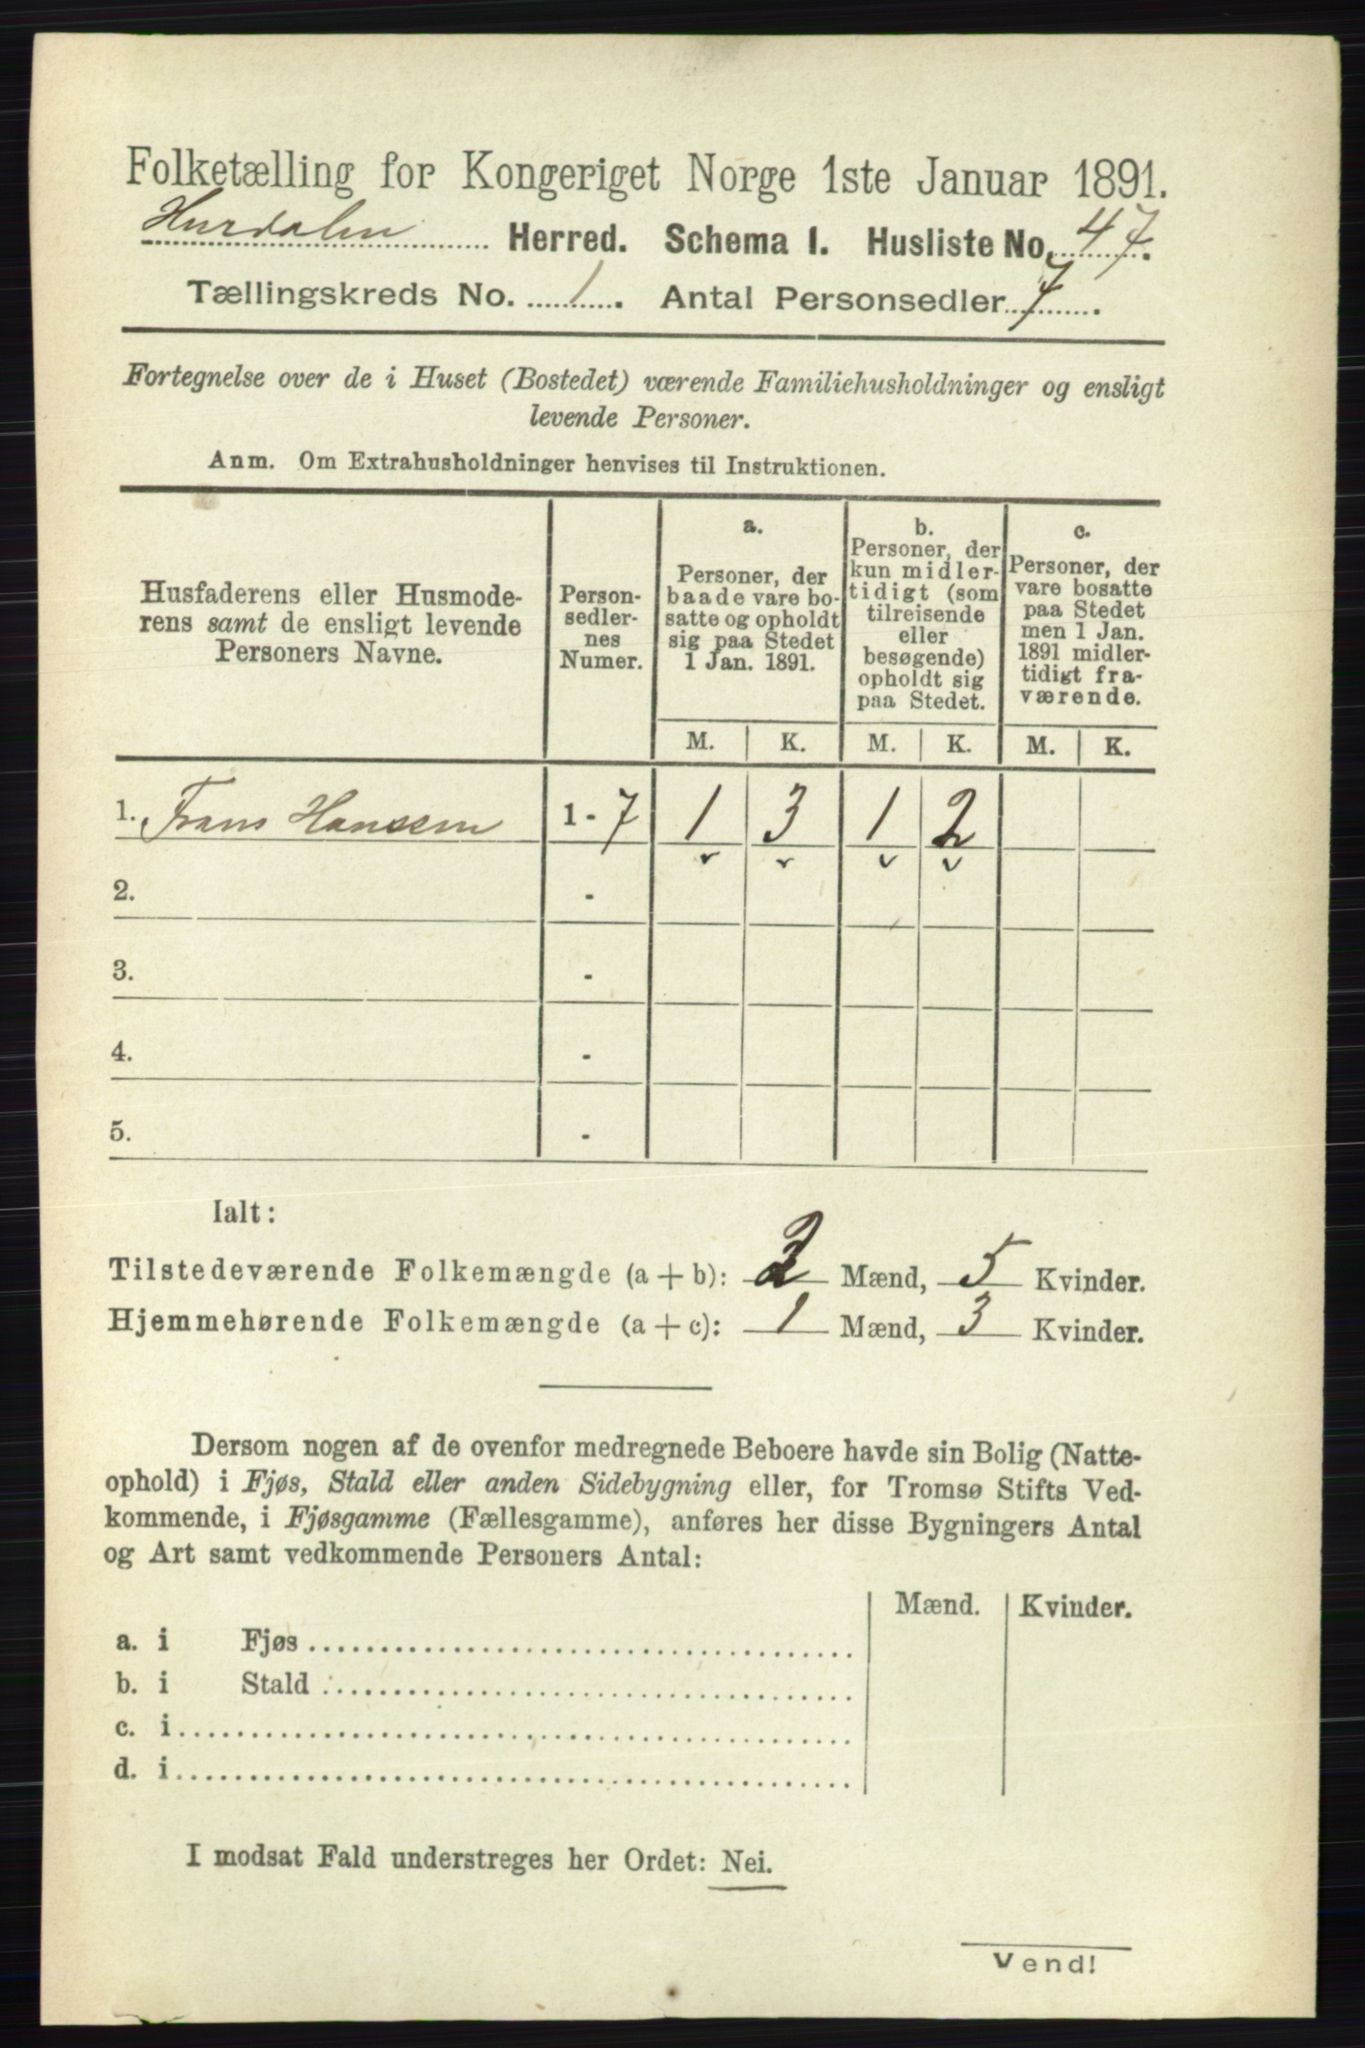 Folketælling for Kongeriget Norge 1ste Januar 1891.
Hurdalen Herred. Schema I. Husliste No. 47.
Tællingskreds No. 1. Antal Personsedler 7.
Fortegnelse over de i Huset (Bostedet) værende Familiehusholdninger og ensligt
levende Personer.
Anm. Om Extrahusholdninger henvises til Instruktionen.
Husfaderens eller Husmode-
rens samt de ensligt levende
Personers Navne.
Person-
sedler-
nes
Numer.
a.
Personer, der
baade vare bo-
satte og opholdt
sig paa Stedet
1 Jan. 1891.
b.
Personer, der
kun midler-
tidigt (som
tilreisende
eller
besøgende)
opholdt sig
paa Stedet.
c.
Personer, der
vare bosatte
paa Stedet
men 1 Jan.
1891 midler-
tidigt fra-
værende.
M. K. M. K. M. K.
1. Frans Hansen 1 - 7 1 3 1 2
2. -
3. -
4. -
5. -
Ialt:
Tilstedeværende Folkemængde (a + b): 2 Mænd, 5 Kvinder.
Hjemmehørende Folkemængde (a + c): 1 Mænd, 3 Kvinder.
Dersom nogen af de ovenfor medregnede Beboere havde sin Bolig (Natte-
ophold) i Fjøs, Stald eller anden Sidebygning eller, for Tromsø Stifts Ved-
kommende, i Fjøsgamme (Fællesgamme), anføres her disse Bygningers Antal
og Art samt vedkommende Personers Antal:
Mænd. Kvinder.
a. i Fjøs
b. i Stald
c. i
d. i
I modsat Fald understreges her Ordet: Nei.
Vend!